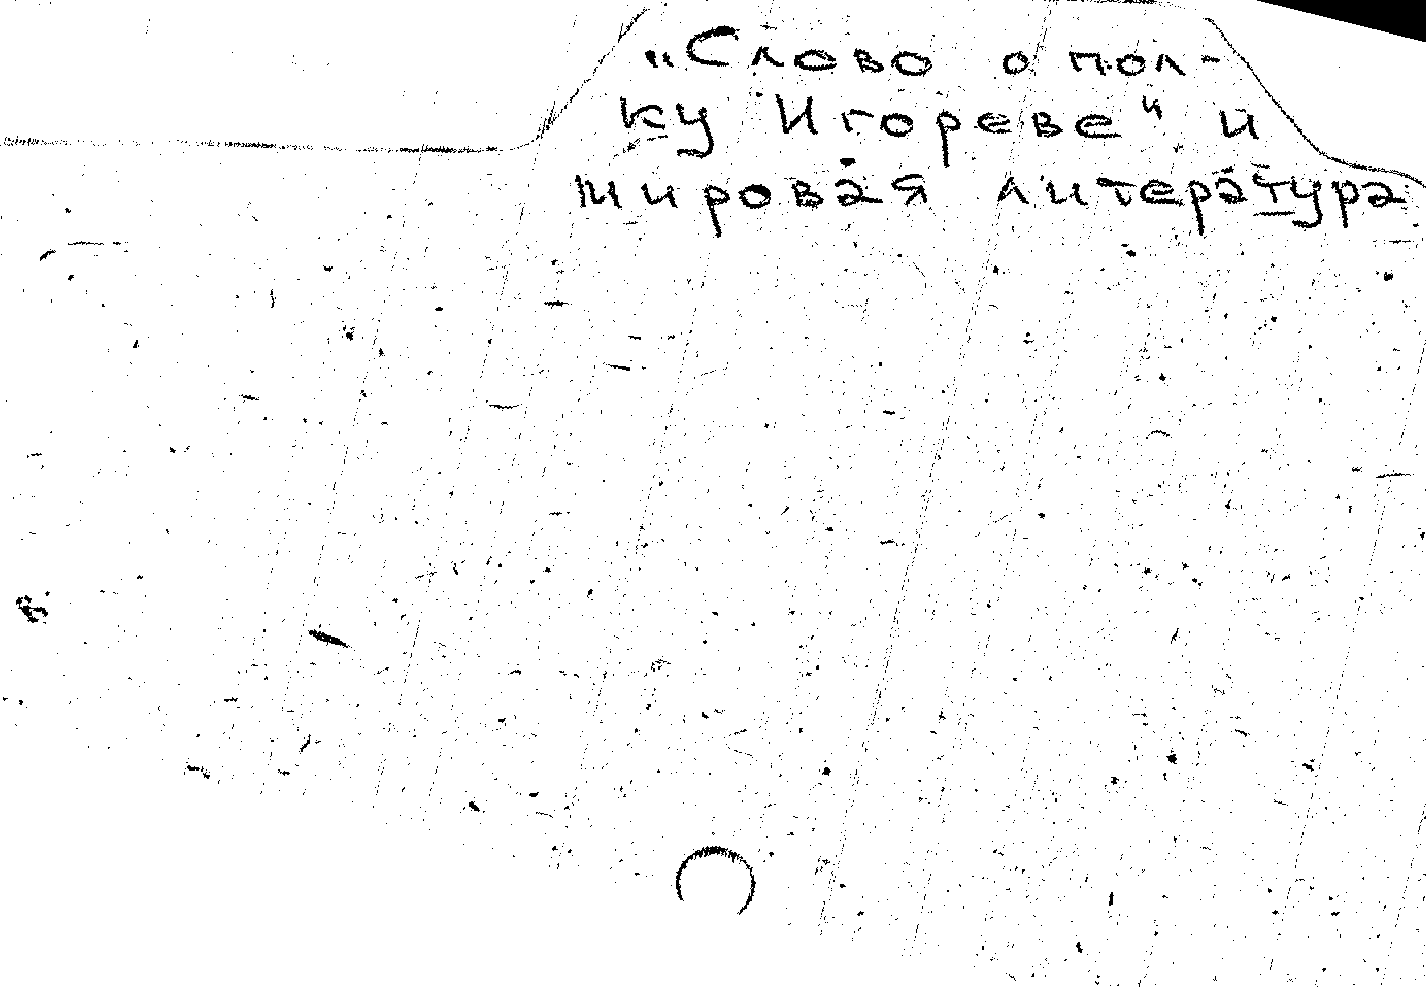 „Слово о пол-
ку Игореве“ и
мировая литература